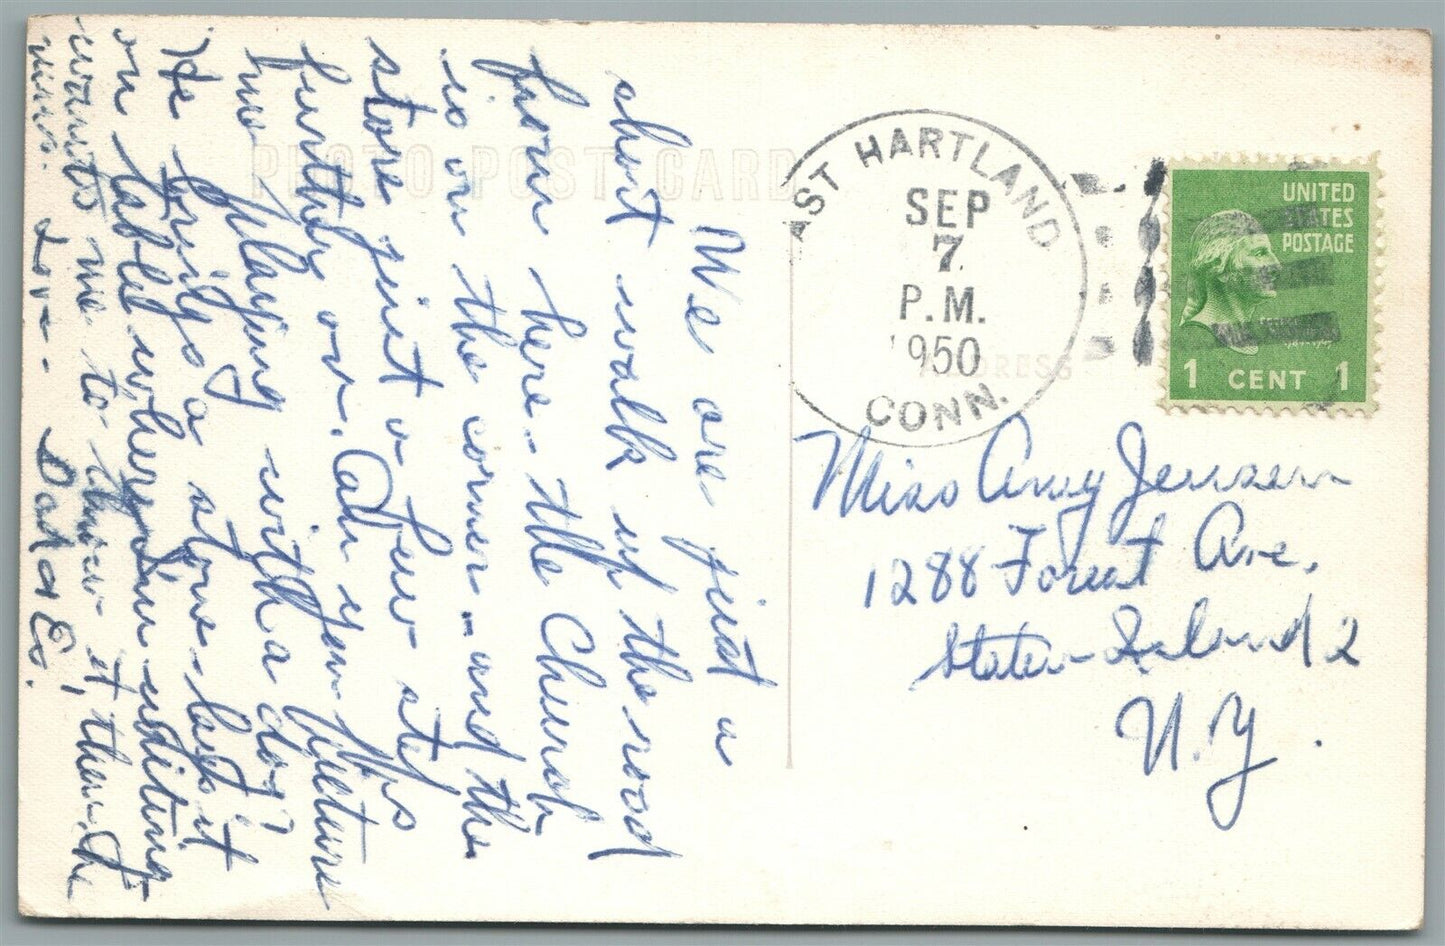 PHOTO POST CARD
We are just a
short walk up the road
from here - the Church
is on the corner - and the
store just a few steps
further on. Can you picture
me playing with a dog?
He brings a stone - lays it
on table where I'm writing -
wants me to throw it, then, he
runs. Love - Dad & E.
EAST HARTLAND
SEP
7
P.M.
1950
CONN.
UNITED
STATES
POSTAGE
1 CENT 1
ADDRESS
Miss Amy Jenssen
1288 Forest Ave.
Staten Island 2
N.Y.